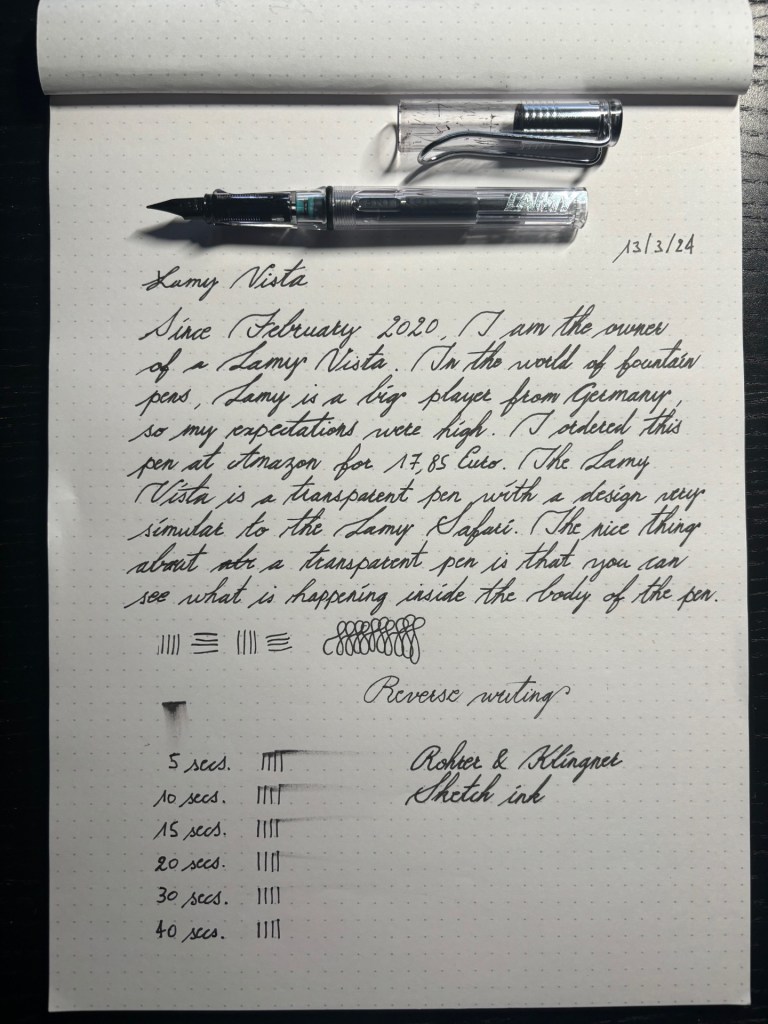 LAMY
13/3/24
Lamy Vista
Since February 2020, I am the owner
of a Lamy Vista. In the world of fountain
pens, Lamy is a big player from Germany,
so my expectations were high. I ordered this
pen at Amazon for 17,85 Euro. The Lamy
Vista is a transparent pen with a design very
simular to the Lamy Safari. The nice thing
about a transparent pen is that you can
see what is happening inside the body of the pen.
Reverse writing
5 secs.
10 secs.
15 secs.
20 secs.
30 secs.
40 secs.
Rohrer & Klingner
Sketch ink